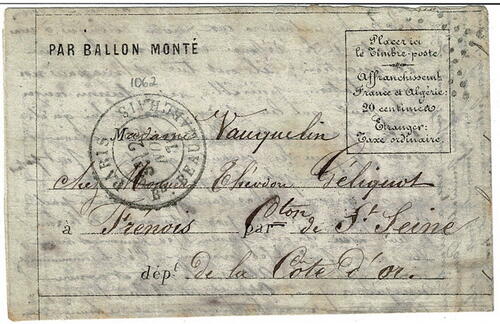 PAR BALLON MONTÉ
Placer ici
le Timbre-poste.
Affranchissemt
France et Algérie:
20 centimes.
Etranger:
Taxe ordinaire.
1062
PARIS BD BEAUMARCHAIS
Madame Vauquelin
chez Théodon Géliquot
à Frénois par Cton de St Seine
dépt de la Côte d'or.